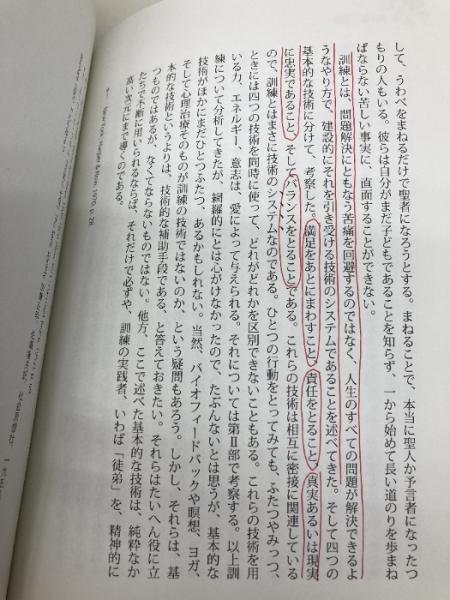 して、うわべをまねるだけで聖者になろうとする。まねることで、本当に聖人か予言者になったつ
もりの人もいる。彼らは自分がまだ子どもであることを知らず、一から始めて長い道のりを歩まね
ばならない苦しい事実に、直面することができない。
訓練とは、問題解決にともなう苦痛を回避するのではなく、人生のすべての問題が解決できるよ
うなやり方で、建設的にそれを引き受ける技術のシステムであることを述べてきた。そして四つの
基本的な技術に分けて、考察した。満足をあとにまわすこと、責任をとること、真実あるいは現実
に忠実であること、そしてバランスをとることである。これらの技術は相互に密接に関連している
ので、訓練とはまさに技術のシステムなのである。ひとつの行動をとってみても、ふたつやみっつ、
ときには四つの技術を同時に使って、どれがどれかを区別できないこともある。これらの技術を用
いる力、エネルギー、意志は、愛によって与えられる。それについては第Ⅱ部で考察する。以上訓
練について分析してきたが、網羅的にとは心がけなかったので、たぶんないとは思うが、基本的な
技術がほかにまだひとつふたつ、あるかもしれない。当然、バイオフィードバックや瞑想、ヨガ、
そして心理治療そのものが訓練の技術ではないのか、という疑問もあろう。しかし、それらは、基
本的な技術というよりは、技術的な補助手段である、と答えておきたい。それらはたいへん役に立
つものではあるが、なくてならないものではない。他方、ここで述べた基本的な技術は、純粋なか
たちで不断に用いられるならば、それだけで必ずや、訓練の実践者、いわば「徒弟」を、精神的に
高い次元にまで導くのである。